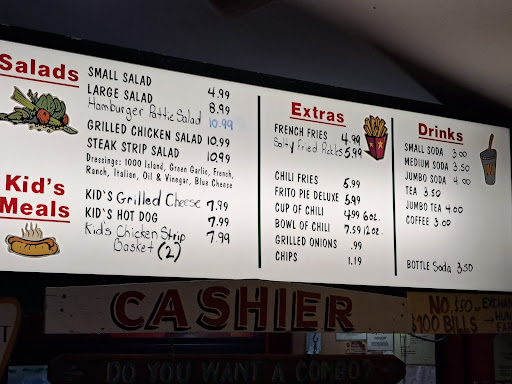 Salads
SMALL SALAD 4.99
LARGE SALAD 8.99
Hamburger Pattie Salad 10.99
GRILLED CHICKEN SALAD 10.99
STEAK STRIP SALAD 10.99
Dressings: 1000 Island, Green Garlic, French,
Ranch, Italian, Oil & Vinegar, Blue Cheese
Kid's
Meals
KID'S Grilled Cheese 7.99
KID'S HOT DOG 7.99
Kid's Chicken Strip 7.99
Basket (2)
Extras
FRENCH FRIES 4.99
Salty Fried Pickles 5.99
CHILI FRIES 5.99
FRITO PIE DELUXE 5.99
CUP OF CHILI 4.99 6oz.
BOWL OF CHILI 7.59 12oz.
GRILLED ONIONS .99
CHIPS 1.19
Drinks
SMALL SODA 3.00
MEDIUM SODA 3.50
JUMBO SODA 4.00
TEA 3.50
JUMBO TEA 4.00
COFFEE 3.00
BOTTLE SODA 3.50
CASHIER
NO, $50 or
$100 BILLS
DO YOU WANT A COMBO?